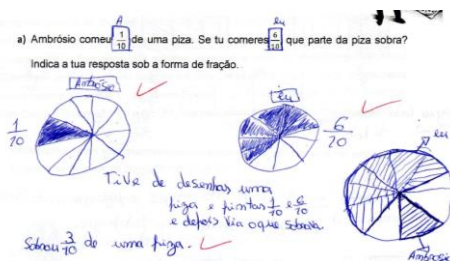 A
eu
a) Ambrósio comeu 1/10 de uma piza. Se tu comeres 6/10, que parte da piza sobra?
Indica a tua resposta sob a forma de fração.
Ambrósio
Eu
1/10
6/10
eu
Tive de desenhar uma
piza e pintar 1/10 e 6/10
e depois via o que sobrava
Sobrou 3/10 de uma piza.
Ambrósio